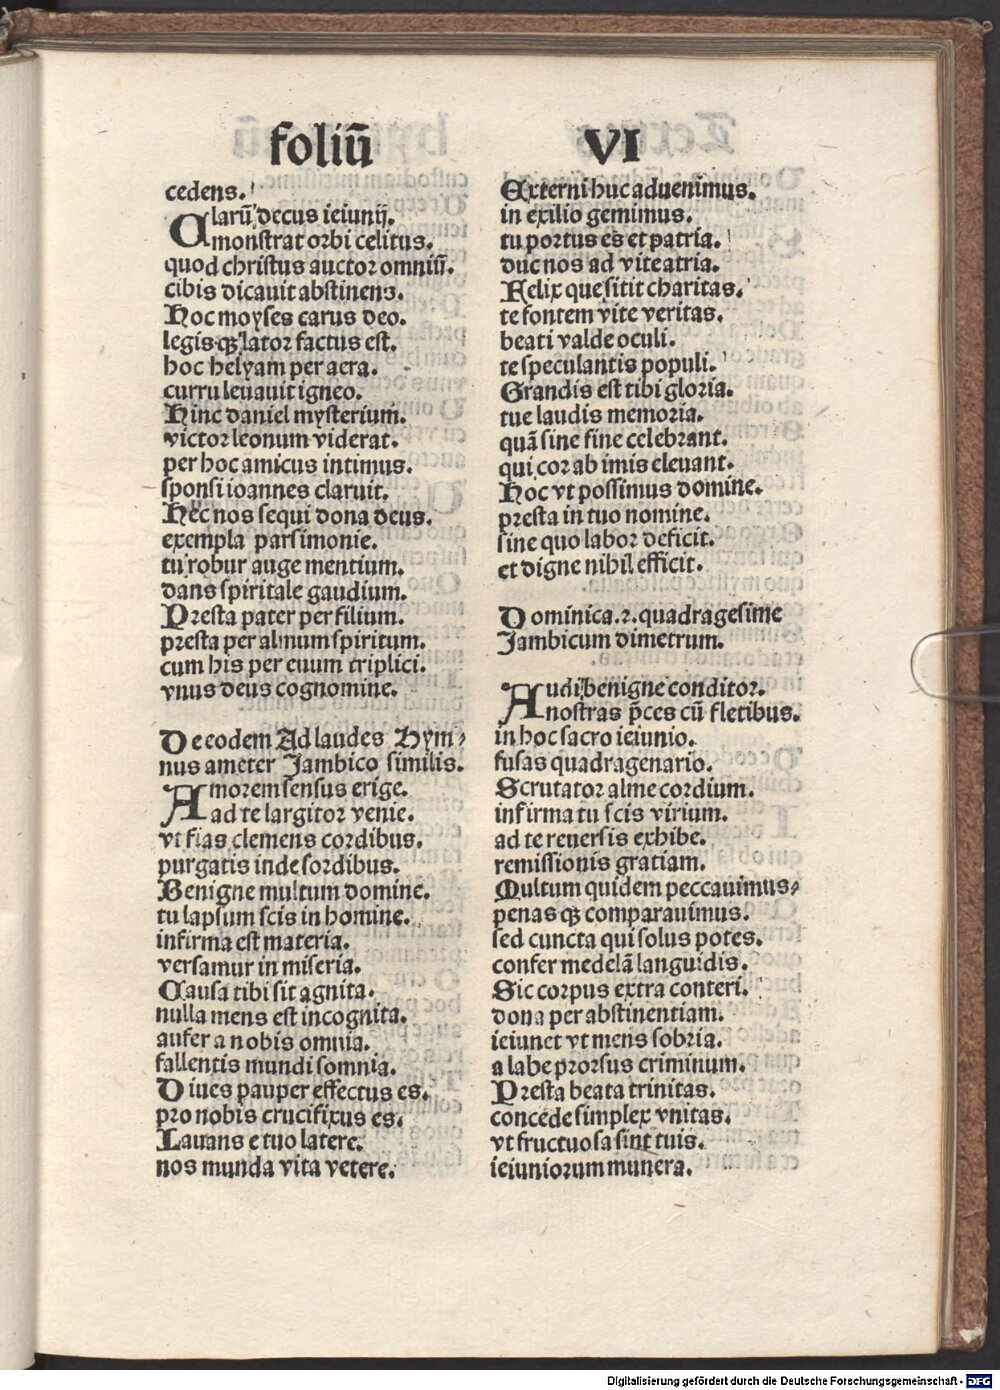 foliū VI
cedens.
Clarū decus ieiunij.
monstrat orbi celitus.
quod christus auctor omniū.
cibis dicauit abstinens.
Hoc moyses carus deo.
legisqꝫ lator factus est.
hoc helyam per aera.
curru leuauit igneo.
Hinc daniel mysterium.
victor leonum viderat.
per hoc amicus intimus.
sponsi ioannes claruit.
Hec nos sequi dona deus.
exempla parsimonie.
tu robur auge mentium.
dans spiritale gaudium.
Presta pater per filium.
presta per almum spiritum.
cum his per euum triplici.
vnus deus cognomine.
De eodem Ad laudes Hym⸗
nus ameter Jambico similis.
Amorem sensus erige.
ad te largitor venie.
vt fias clemens cordibus.
purgatis inde sordibus.
Benigne multum domine.
tu lapsum scis in homine.
infirma est materia.
versamur in miseria.
Causa tibi sit agnita.
nulla mens est incognita.
aufer a nobis omnia.
fallentis mundi somnia.
Diues pauper effectus es.
pro nobis crucifixus es.
Lauans e tuo latere.
nos munda vita vetere.
Externi huc aduenimus.
in exilio gemimus.
tu portus es et patria.
duc nos ad vite atria.
Felix que sitit charitas.
te fontem vite veritas.
beati valde oculi.
te speculantis populi.
Grandis est tibi gloria.
tue laudis memoria.
quā sine fine celebrant.
qui cor ab imis eleuant.
Hoc vt possimus domine.
presta in tuo nomine.
sine quo labor deficit.
et digne nihil efficit.
Dominica.2.quadragesime
Jambicum dimetrum.
Audi benigne conditor.
nostras p̄ces cū fletibus.
in hoc sacro ieiunio.
fusas quadragenario.
Scrutator alme cordium.
infirma tu scis virium.
ad te reuersis exhibe.
remissionis gratiam.
Multum quidem peccauimus⸗
penasqꝫ comparauimus.
sed cuncta qui solus potes.
confer medelā languidis.
Sic corpus extra conteri.
dona per abstinentiam.
ieiunet vt mens sobria.
a labe prorsus criminum.
Presta beata trinitas.
concede simplex vnitas.
vt fructuosa sint tuis.
ieiuniorum munera.
Digitalisierung gefördert durch die Deutsche Forschungsgemeinschaft - DFG